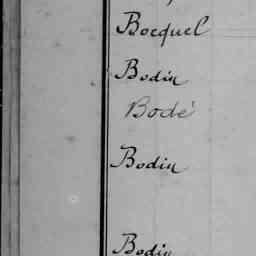 Bocquel
Bodin
Bodé
Bodin
Bodin